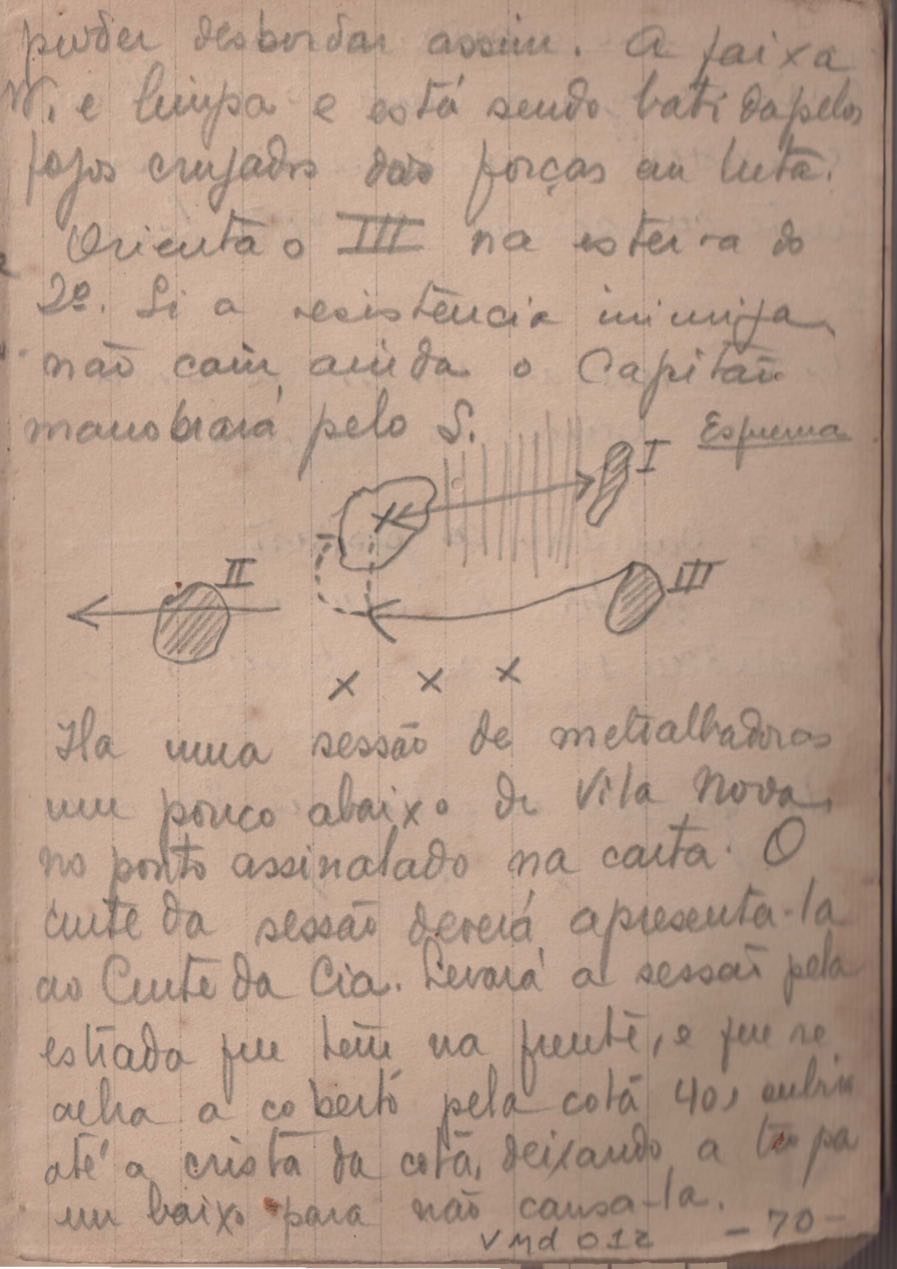 puder desbordar assim. A faixa
N. e limpa e está sendo batida pelos
fogos cruzados das forças em luta.
Orienta o III na esteira do
2º. Si a resistência inimiga,
não cair, ainda o Capitão
manobrará pelo S.
Esquema
I
II
III
Ha uma sessão de metralhadoras
um pouco abaixo de Vila Nova,
no ponto assinalado na carta. O
cmte da sessão deverá apresenta-la
ao Cmte da Cia. Levará a sessão pela
estrada que tem na frente, e que se
acha a coberto pela cota 40,
até a crista da cota, deixando a tropa
em baixo para não cansa-la.
VMd 012
- 70 -